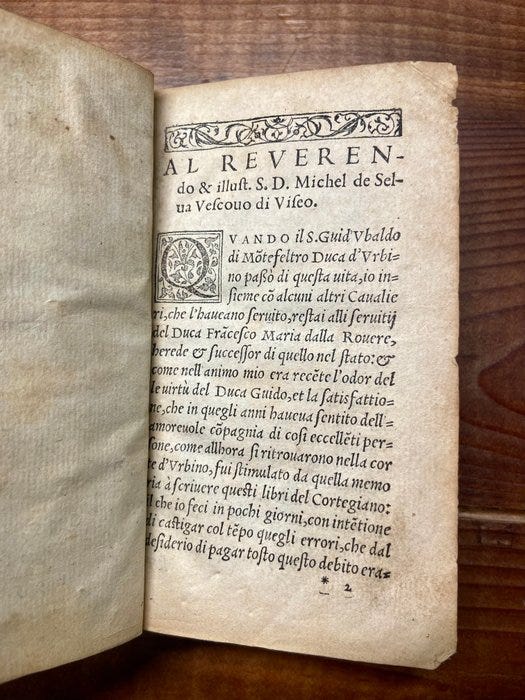 AL REVEREN-
do & illust. S. D. Michel de Sel-
ua Vescouo di Viseo.
QVANDO il S. Guid'Vbaldo
di Mōtefeltro Duca d'Vrbi-
no passò di questa vita, io in-
sieme cō alcuni altri Caualie
ri, che l'haueano seruito, restai alli seruitij
del Duca Frācesco Maria dalla Rouere,
herede & successor di quello nel stato: &
come nell animo mio era recēte l'odor del
le uirtù del Duca Guido, et la satisfattio-
ne, che in quegli anni haueua sentito dell'
amoreuole cōpagnia di cosi eccellēti per-
sone, come allhora si ritrouarono nella cor
te d'Vrbino, fui stimulato da quella memo
ria à scriuere questi libri del Cortegiano:
il che io feci in pochi giorni, con intētione
di castigar col tēpo quegli errori, che dal
desiderio di pagar tosto questo debito era-
* 2